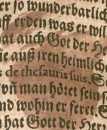 er so wunderbarlich
uff erden was er wil
at auch Gott der He
ie auß iren heimlich
s de thesauris suis. S
von man höret sein
nd wohin er feret
n hat Gott der Her